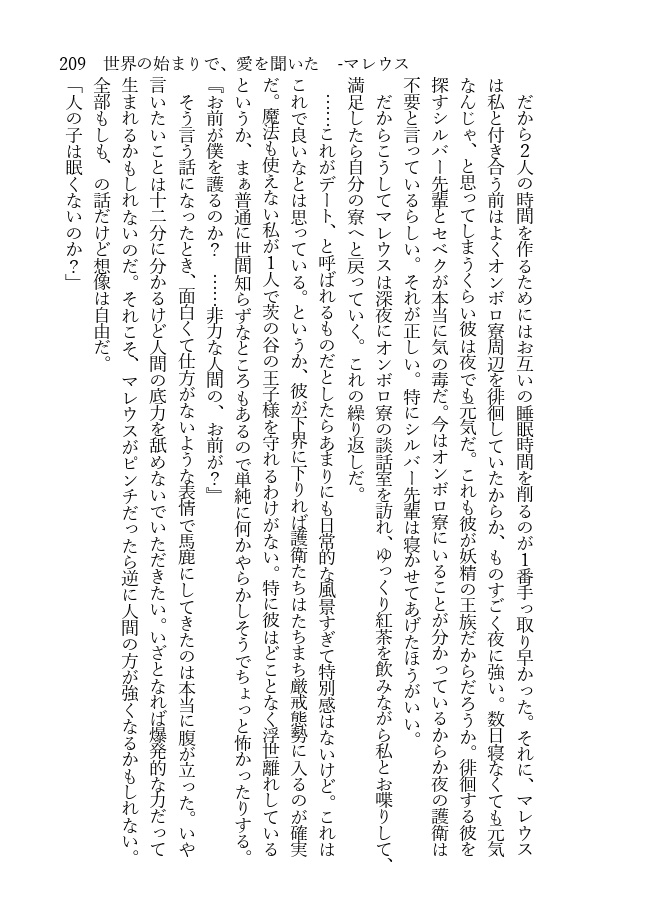 209　世界の始まりで、愛を聞いた　-マレウス
　だから２人の時間を作るためにはお互いの睡眠時間を削るのが１番手っ取り早かった。それに、マレウス
は私と付き合う前はよくオンボロ寮周辺を徘徊していたからか、ものすごく夜に強い。数日寝なくても元気
なんじゃ、と思ってしまうくらい彼は夜でも元気だ。これも彼が妖精の王族だからだろうか。徘徊する彼を
探すシルバー先輩とセベクが本当に気の毒だ。今はオンボロ寮にいることが分かっているからか夜の護衛は
不要と言っているらしい。それが正しい。特にシルバー先輩は寝かせてあげたほうがいい。
　だからこうしてマレウスは深夜にオンボロ寮の談話室を訪れ、ゆっくり紅茶を飲みながら私とお喋りして、
満足したら自分の寮へと戻っていく。これの繰り返しだ。
　……これがデート、と呼ばれるものだとしたらあまりにも日常的な風景すぎて特別感はないけど。これは
これで良いなとは思っている。というか、彼が下界に下りれば護衛たちはたちまち厳戒態勢に入るのが確実
だ。魔法も使えない私が１人で茨の谷の王子様を守れるわけがない。特に彼はどことなく浮世離れしている
というか、まぁ普通に世間知らずなところもあるので単純に何かやらかしそうでちょっと怖かったりする。
『お前が僕を護るのか？　……非力な人間の、お前が？』
　そう言う話になったとき、面白くて仕方がないような表情で馬鹿にしてきたのは本当に腹が立った。いや
言いたいことは十二分に分かるけど人間の底力を舐めないでいただきたい。いざとなれば爆発的な力だって
生まれるかもしれないのだ。それこそ、マレウスがピンチだったら逆に人間の方が強くなるかもしれない。
全部もしも、の話だけど想像は自由だ。
「人の子は眠くないのか？」